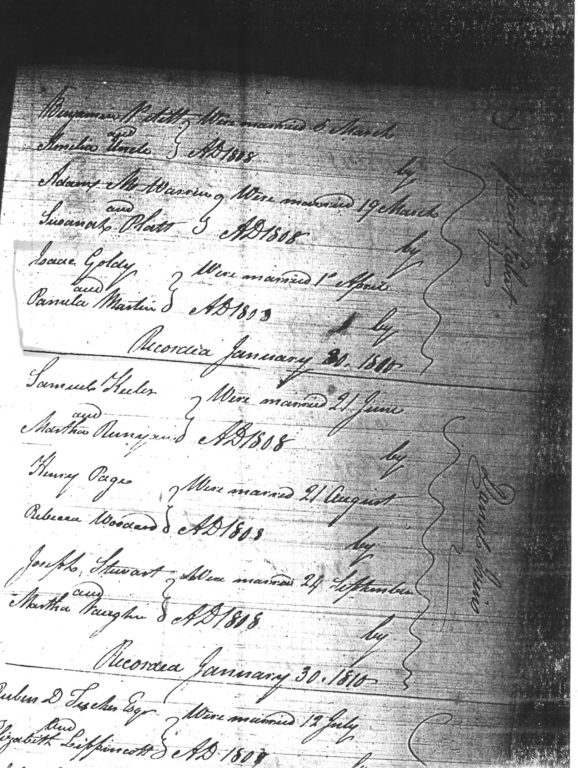 Benjamin Petitt } Were married 6 March
Amelia } AD 1808
by
Adams Mc Warren } Were married 19 March
and
Susanah Platt } AD 1808
by
Isaac Goldy } Were married 1st April
and
Pamela Martin } AD 1808
by
Recorded January 30. 1810
Samuel Keeler } Were married 21 June
and
Martha Runyan } AD 1808
by
Henry Page } Were married 21 August
Rebecca Woodard } AD 1808
by
Joseph Stewart } Were married 24 September
and
Martha Vaughn } AD 1808
by
Recorded January 30. 1810
Ruben D Tucher Esqr } Were married 12 July
and
Elizabeth Lippincott } AD 1808